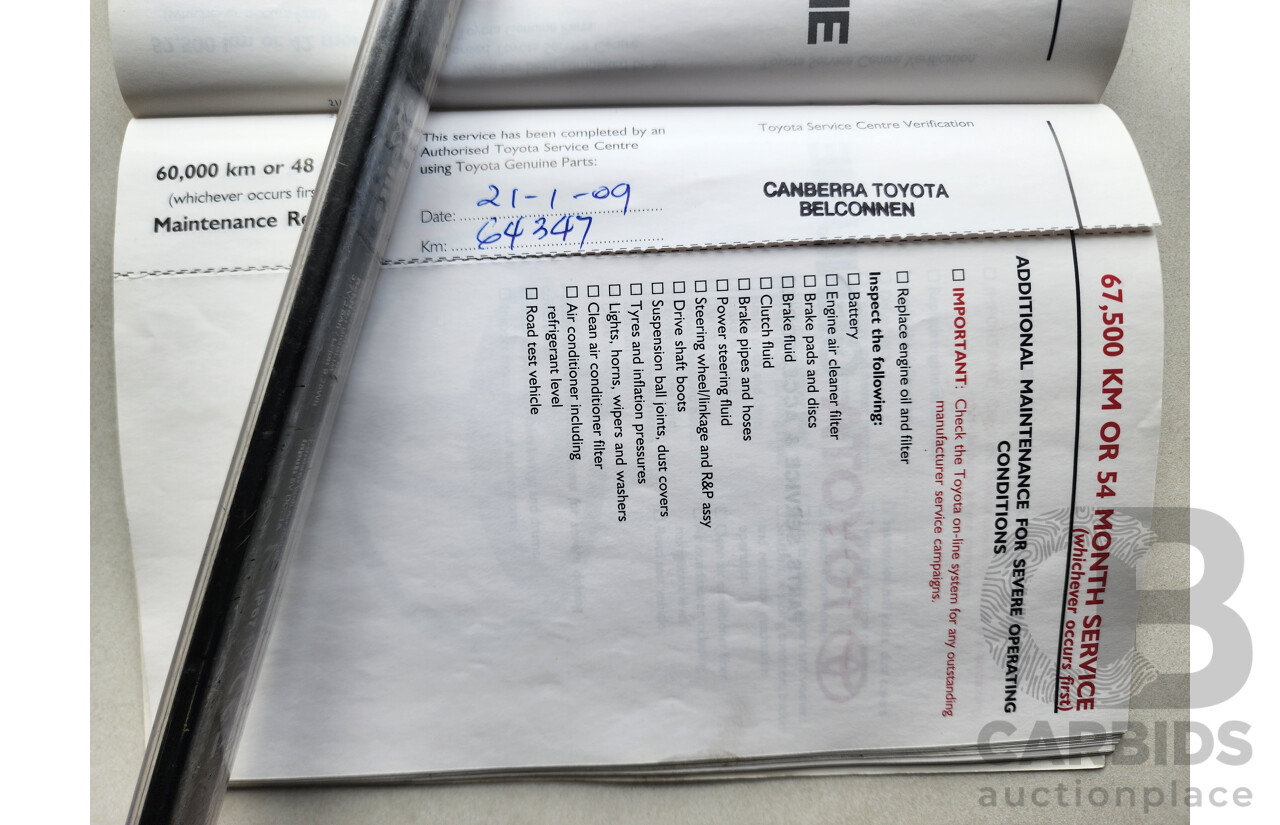 NE
60,000 km or 48
(whichever occurs firs
Maintenance Re
This service has been completed by an
Authorised Toyota Service Centre
using Toyota Genuine Parts:
Date: 21-1-09
Km: 64347
Toyota Service Centre Verification
CANBERRA TOYOTA
BELCONNEN
67,500 KM OR 54 MONTH SERVICE
(whichever occurs first)
ADDITIONAL MAINTENANCE FOR SEVERE OPERATING
CONDITIONS
☐ IMPORTANT: Check the Toyota on-line system for any outstanding
manufacturer service campaigns.
☐ Replace engine oil and filter
Inspect the following:
☐ Battery
☐ Engine air cleaner filter
☐ Brake pads and discs
☐ Brake fluid
☐ Clutch fluid
☐ Brake pipes and hoses
☐ Power steering fluid
☐ Steering wheel/linkage and R&P assy
☐ Drive shaft boots
☐ Suspension ball joints, dust covers
☐ Tyres and inflation pressures
☐ Lights, horns, wipers and washers
☐ Clean air conditioner filter
☐ Air conditioner including
refrigerant level
☐ Road test vehicle
CB
CARBIDS
auctionplace